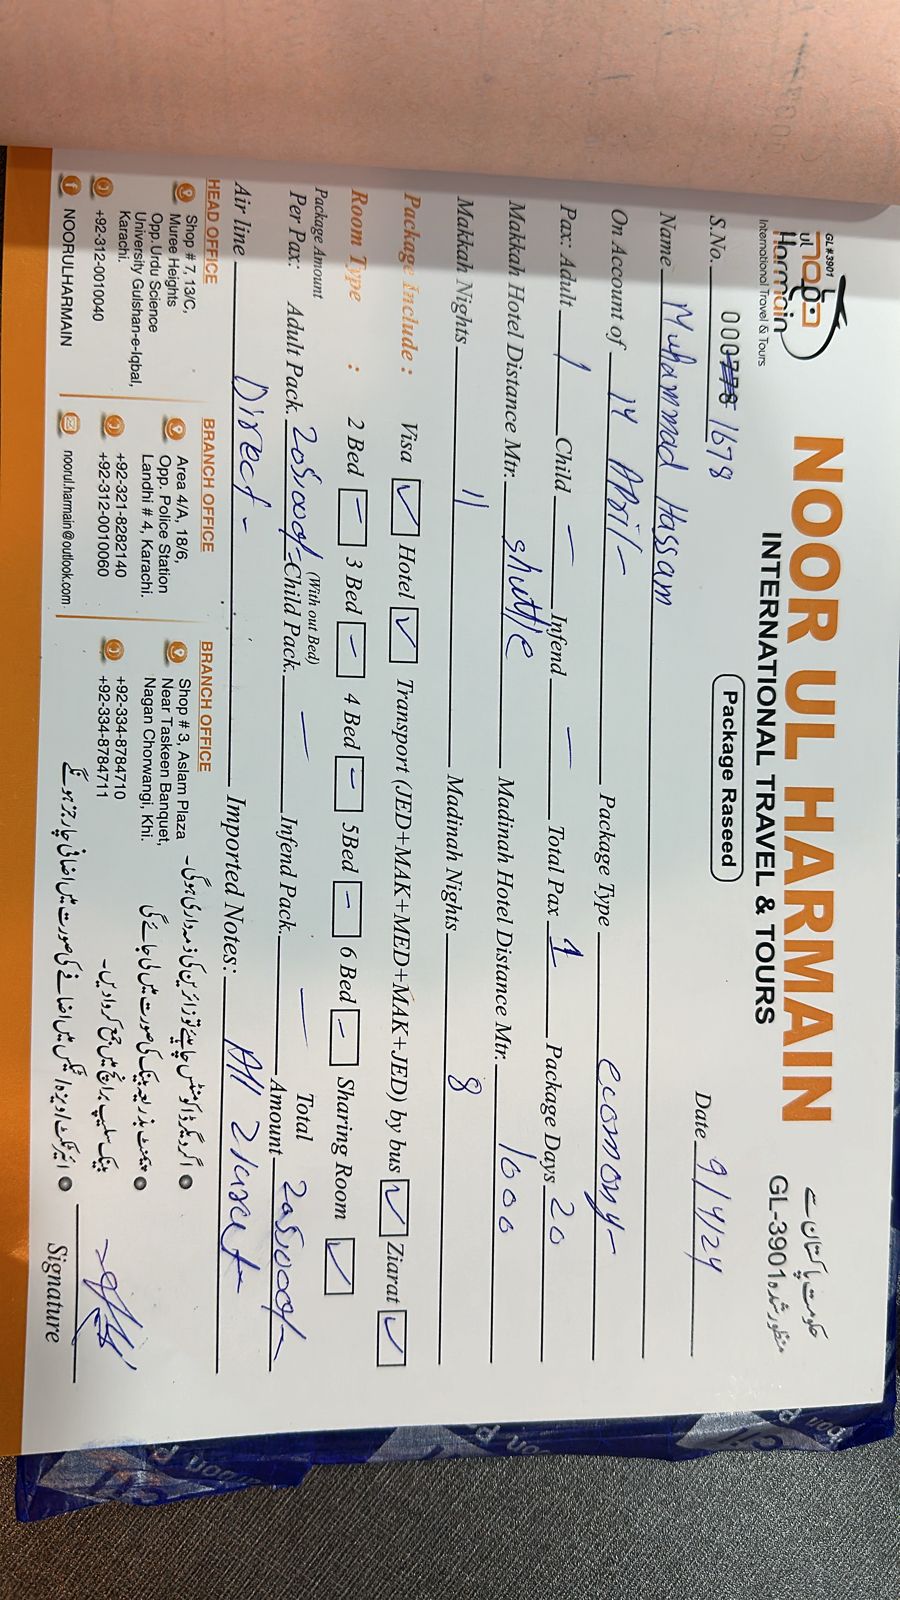 GL#3901
ul noor
Harmain
International Travel & Tours
NOOR UL HARMAIN
INTERNATIONAL TRAVEL & TOURS
Package Raseed
حکومت پاکستان سے
منظور شدہ GL-3901
S.No. 000778 1678
Date 9/4/24
Name Muhammad Hassam
On Account of 14 April/- Package Type economy-
Pax: Adult 1 Child — Infend — Total Pax 1 Package Days 20
Makkah Hotel Distance Mtr. shuttle Madinah Hotel Distance Mtr. 1000
Makkah Nights 11 Madinah Nights 8
Package Include : Visa ✓ Hotel ✓ Transport (JED+MAK+MED+MAK+JED) by bus ✓ Ziarat ✓
Room Type : 2 Bed – 3 Bed – 4 Bed – 5Bed – 6 Bed – Sharing Room ✓
Package Amount Per Pax: Adult Pack. 205,000/- (With out Bed) Child Pack. — Infend Pack. — Total Amount 205,000/-
Air line Direct - Imported Notes: All Ziarat
HEAD OFFICE
Shop # 7, 13/C,
Muree Heights
Opp. Urdu Science
University Gulshan-e-Iqbal,
Karachi.
+92-312-0010040
NOORULHARMAIN
BRANCH OFFICE
Area 4/A, 18/6,
Opp. Police Station
Landhi # 4, Karachi.
+92-321-8282140
+92-312-0010060
noorul.harmain@outlook.com
BRANCH OFFICE
Shop # 3, Aslam Plaza
Near Taskeen Banquet,
Nagan Chorwangi, Khi.
+92-334-8784710
+92-334-8784711
اگر دیگر ڈاکومنٹس چاہیئے تو زائرین کی ذمہ داری ہوگی۔
پیمنٹ بذریعہ بینک کی صورت میں لی جائے گی
بینک سلیپ برانچ میں جمع کروادیں۔
ائیر ٹکٹ/ویزہ/ٹیکس میں اضافے کی صورت میں اضافی چارجز ہونگے
Signature